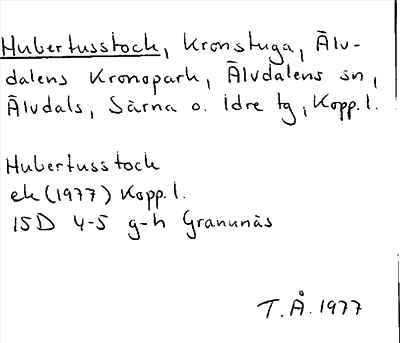 Hubertusstock, Kronstuga, Älv-
dalens Kronopark, Älvdalens sn,
Älvdals, Särna o. Idre tg, Kopp.l.
Hubertusstock
ek (1977) Kopp.l.
15D 4-5 g-h Granunäs
T.Å. 1977